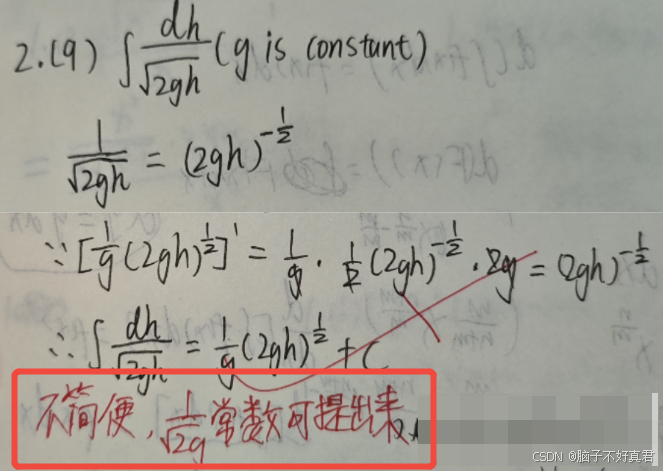 2.(9) ∫ dh/√2gh (g is constant)
1/√2gh = (2gh)^-1/2
∵ [1/g (2gh)^1/2]' = 1/g · 1/2 (2gh)^-1/2 · 2g = (2gh)^-1/2
∴ ∫ dh/√2gh = 1/g (2gh)^1/2 + C
不简便, 1/√2g 常数可提出来
CSDN @脑子不好真君